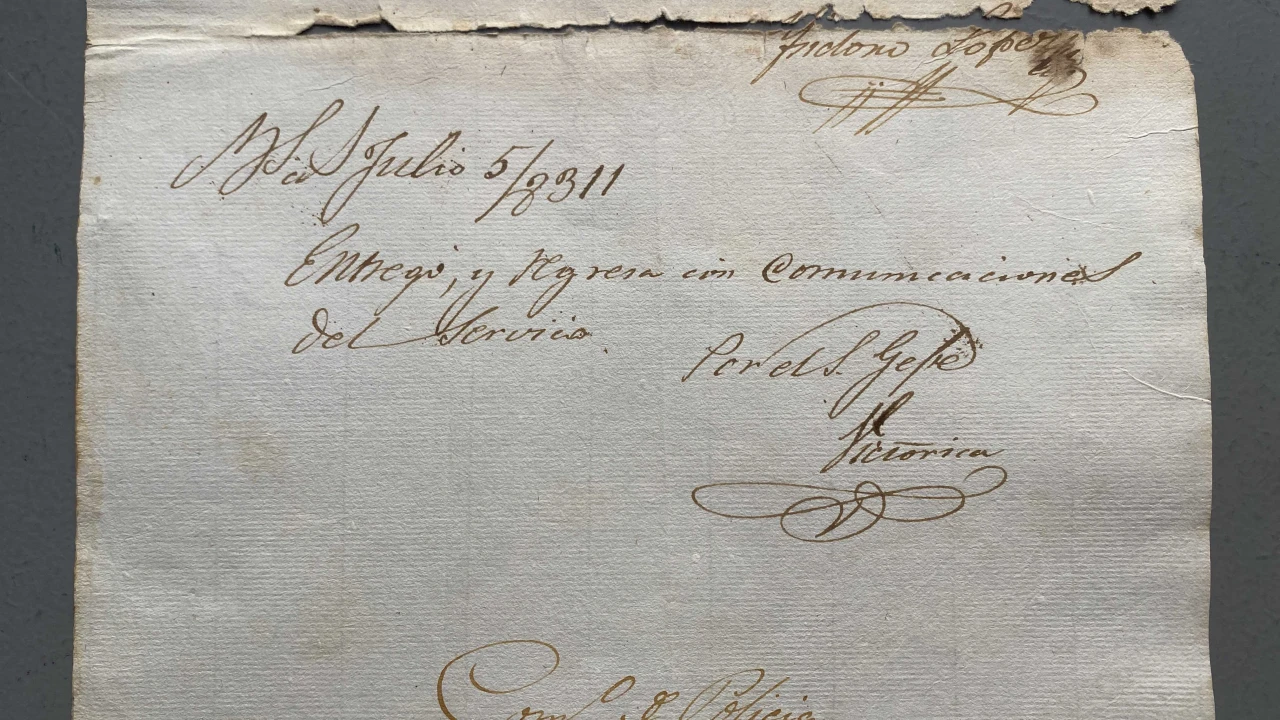 Isidoro Lopez
Bs. as Julio 5/8311
Entregó, y regresa con comunicaciones
del Servicio
Por el S. Gefe
Victorica
Com.  Policia